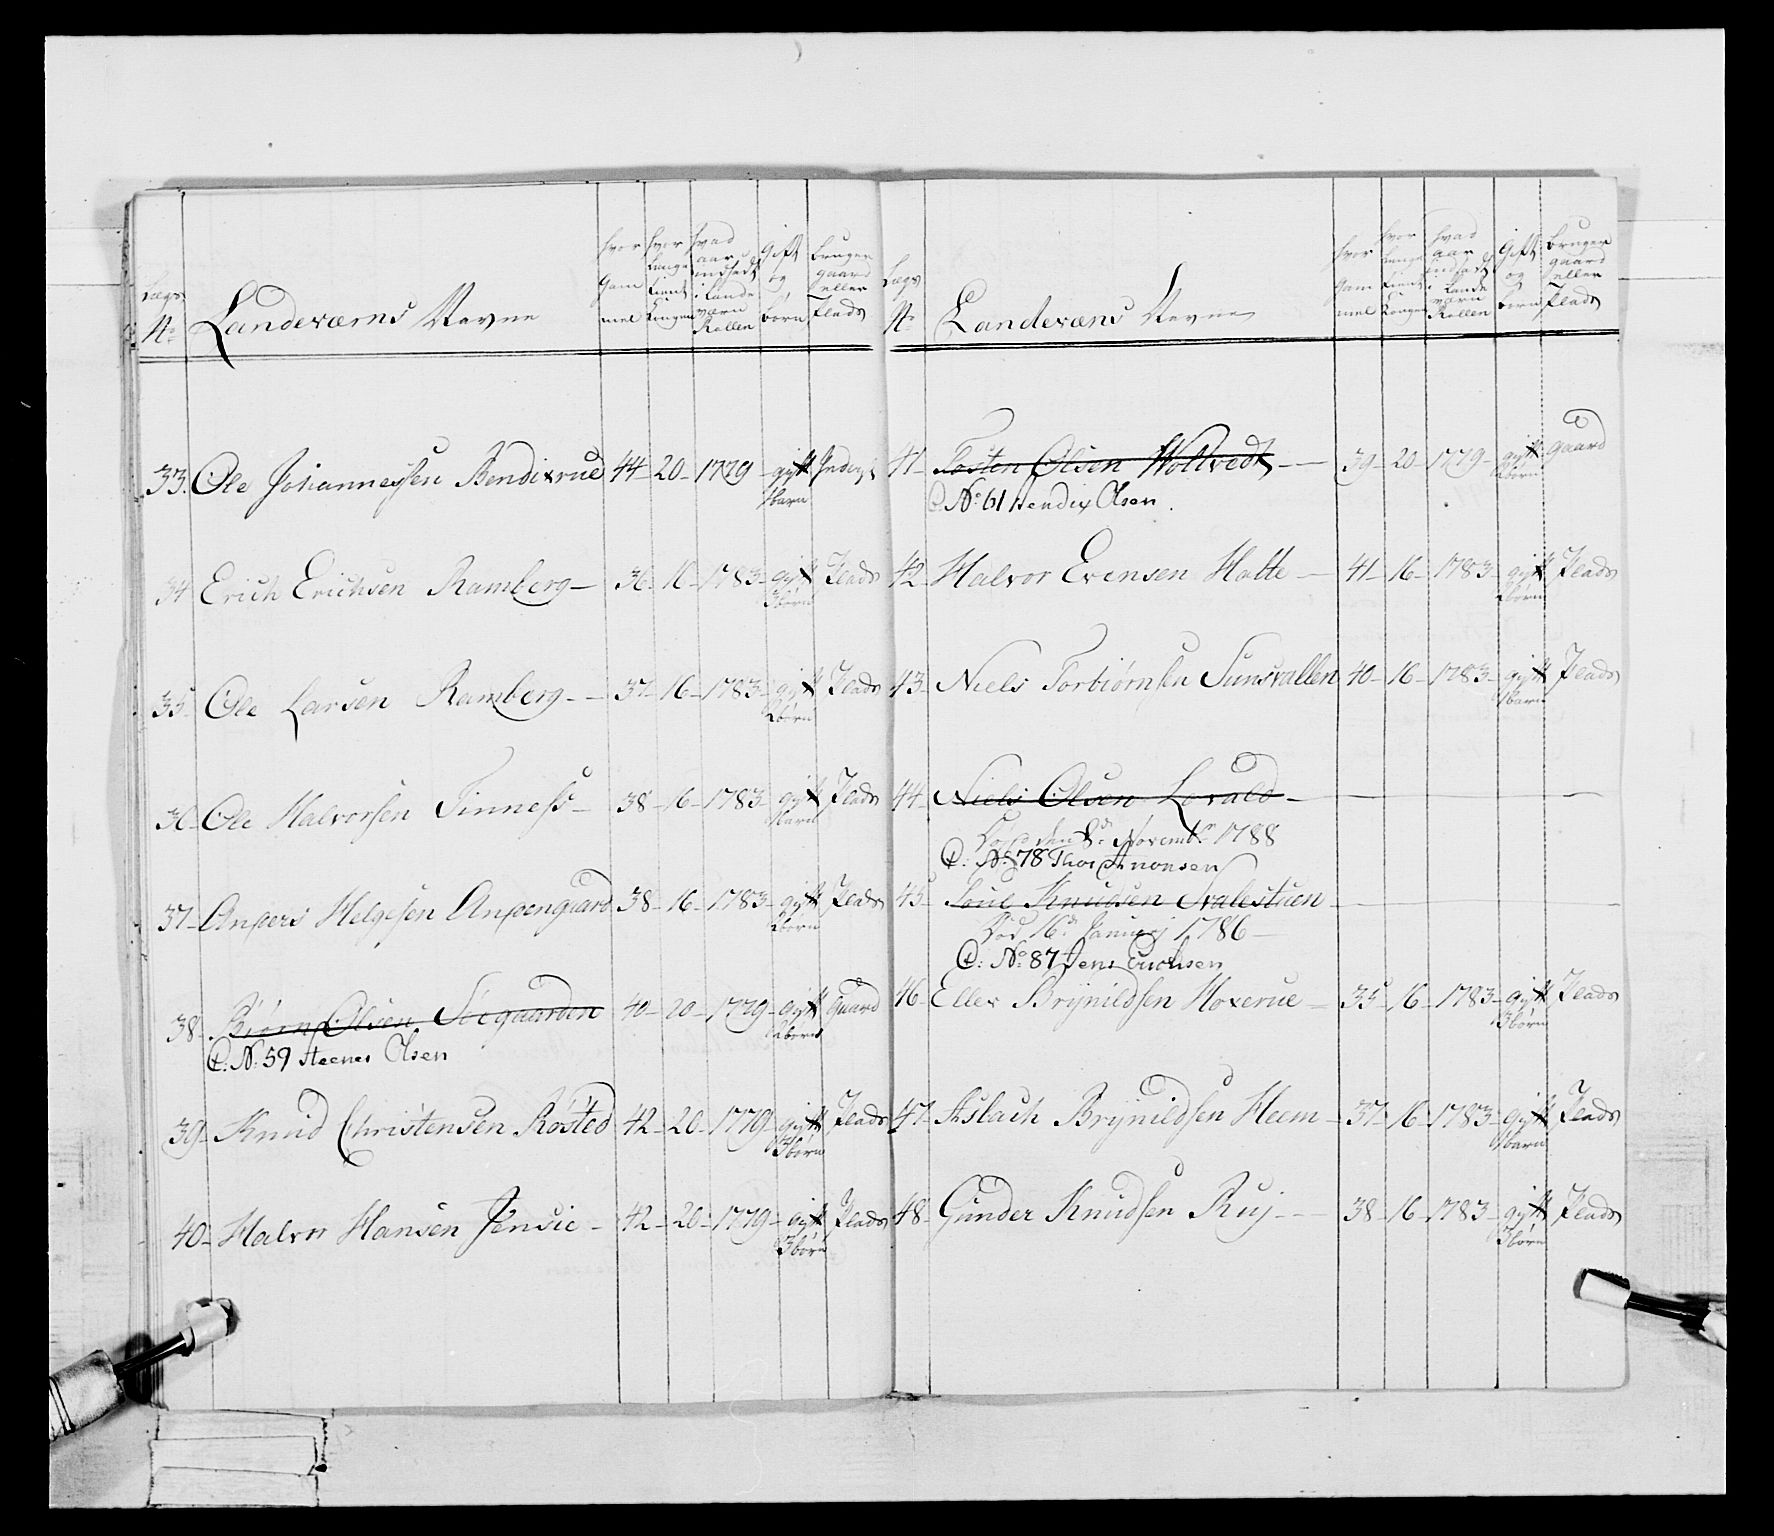 Lægs No Landeværns Navne hvor Gammel hvor længe tient Kongen hvad aar indsadt i Landeværn Rollen Gift og børn bruger gaard eller Plads
33. Ole Johannessen Bendixrue 44 - 20 - 1779 - gift 1 barn Inderst
34 Erich Erichsen Ramberg - 36 - 16 - 1783 - gift 3 børn Plads
35 Ole Larsen Ramberg - 37 - 16 - 1783 - gift 2 børn Plads
36 Ole Halvorsen Tinness - 38 - 16 - 1783 - gift 1 barn Plads
37 - Anders Helgesen Andengaard 38 - 16 - 1783 - gift 2 børn Plads
38 - Biørn Olsen Siegaarden 40 - 20 - 1779 - gift 2 børn gaard
C: No 59 Steener Olsen
39 - Knud Christensen Røsted 42 - 20 - 1779 - gift 3 børn Plads
40 - Halvor Hansen Jensie - 42 - 20 - 1779 - gift 3 børn Plads
Lægs No Landeværns Navne hvor Gammel hvor længe tient Kongen hvad aar indsadt i Landeværn Rollen Gift og børn bruger gaard eller Plads
41 - Tosten Olsen Wollvedt - 39 - 20 - 1779 - gift 2 børn gaard
C: No 61 Hendix Olsen.
42 - Halvor Evensen Hatte - 41 - 16 - 1783 - gift 2 børn Plads
43 - Niels Torbiørnsen Sunsvallen 40 - 16 - 1783 - gift 1 barn Plads
44 - Niels Olsen Lovald -
Død den 8de Novembr 1788
C: No 78 Thor Anonsen
45 - Poul Knudsen Svalestuen
Død 16de Januarj 1786 -
C: No 87 Jens Erichsen
46 - Ellev Brynildsen Hoxerue - 35 - 16 - 1783 - gift 3 børn Plads
47 - Aslach Brynildsen Heem - 37 - 16 - 1783 - gift 1 barn Plads
48 - Gunder Knudsen Ruj - 38 - 16 - 1783 - gift 3 børn Plads